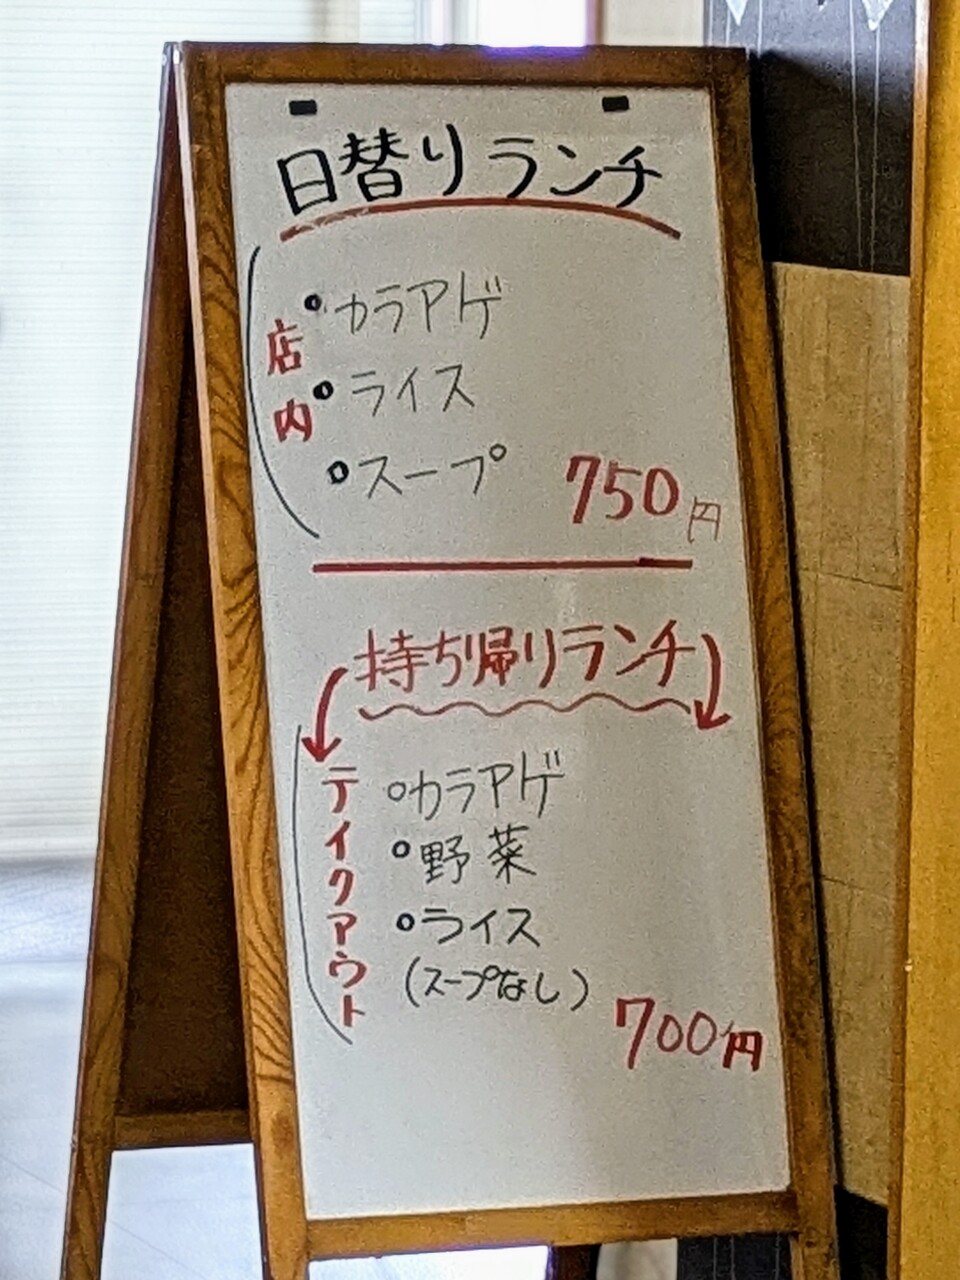 日替りランチ
店内
・カラアゲ
・ライス
・スープ
750円
持ち帰りランチ
テイクアウト
・カラアゲ
・野菜
・ライス
(スープなし)
700円